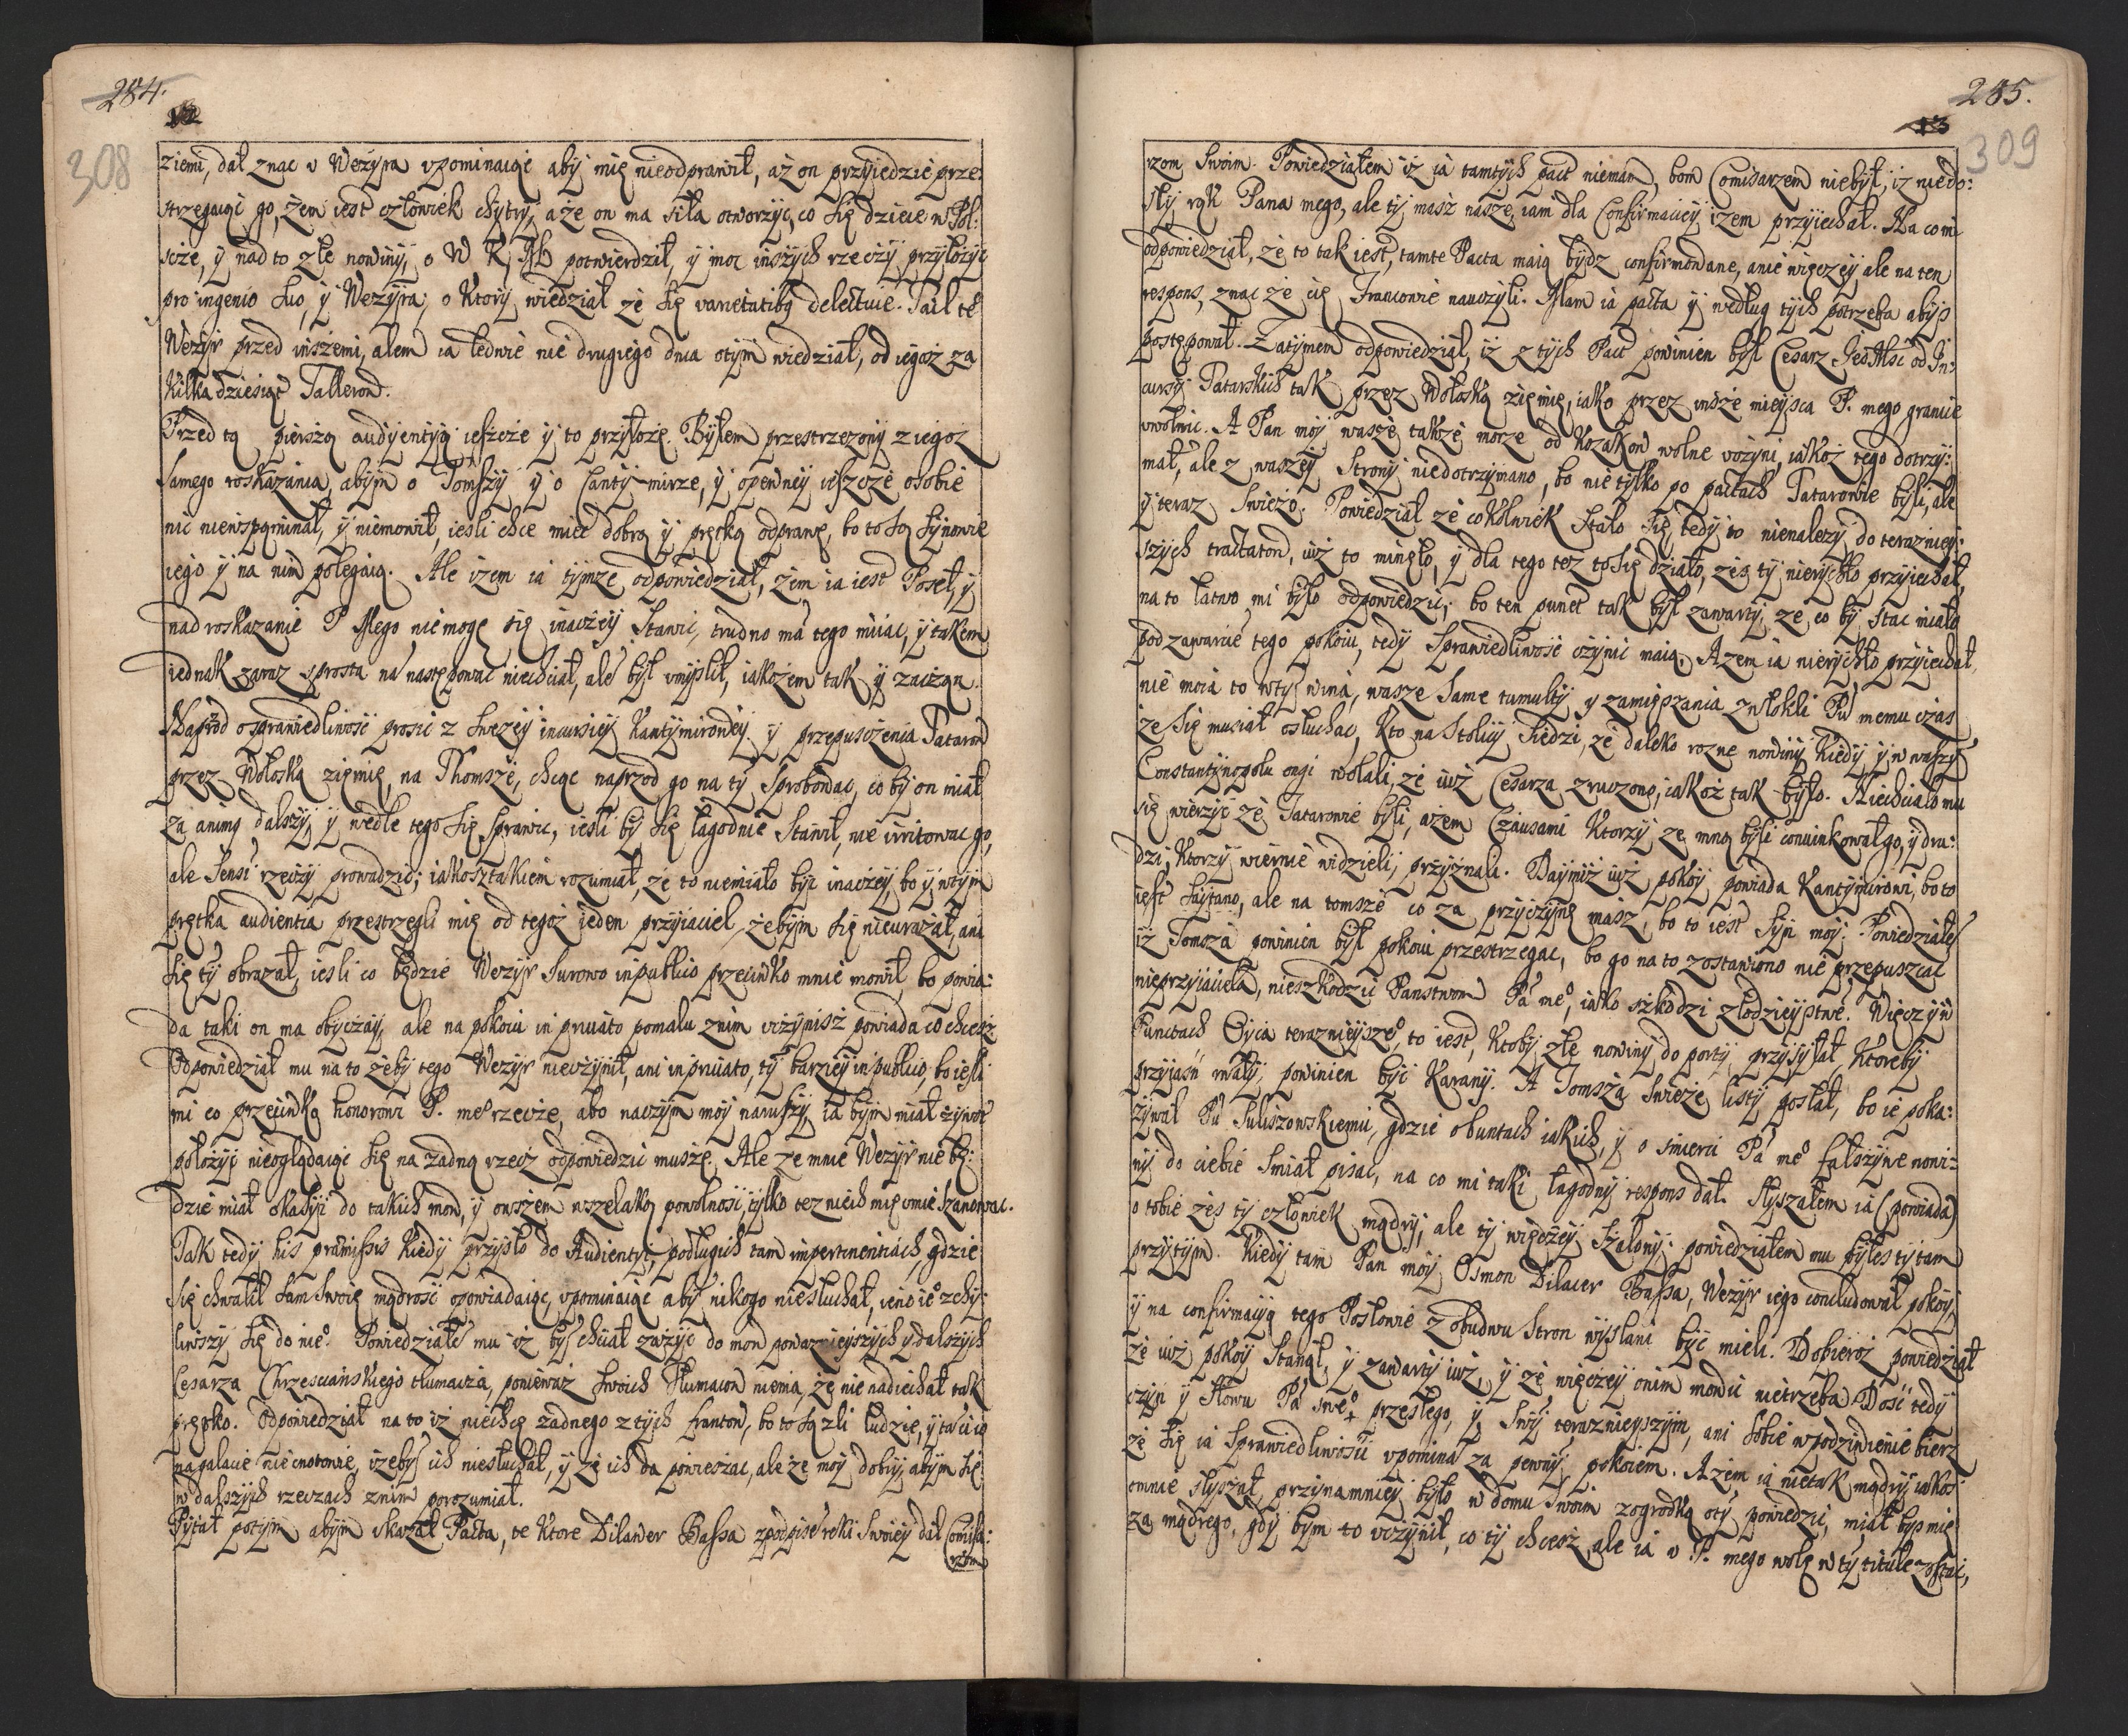 284.
12
308
ziemi, dał znac v Wezyra vpominaiąc aby mię nieodprawił, aż on przyiedzie prze:
strzegaiąc go, żem iest człowiek chytry, a że on ma siła otworzyc, co się dzieie w Pol:
szcze, y nad to złe nowiny, o W K Mci potwierdził, y moc inszych rzeczy przyłożyc
pro ingenio suo, y Wezyra, o ktory wiedział ze się varietatibq delectuie. Taił te
Wezyr przed inszemi, alem ia ledwie nie drugiego dnia otym wiedział, od iegoż za
kilkadziesiąt Tallerow.
Przed tą pierszą audyentyą ieszcze y to przyłożę. Byłem przestrzezony z iegoz
samego roskazania, abym o Tomszy y o Canty-mirze, y opewney ieszcze osobie
nic niewzpominał, y niemowił, iesli chce miec dobrą y prętką odprawę, bo to są synowie
iego y na nim polegaią. Ale izem ia tymze odpowiedział, żem ia iest Poseł, y
nad roskazanie P Mego niemogę się inaczey stawic, trudno ma tego miiac, y takem
iednak zaraz sprosta na nastepowac niechciał, ale był vmyslił, iakożem tak y zaczął.
Naprzod osprawiedliwosc prosic z swezey incursiey Kantymirowey y przepusczenia Tatarow
przez Wołoską ziemię, na Thomszę, chcąc naprzod go na ty sprobowac, co by on miał
za animq dalszy, y wedle tego się sprawic, iesli by się łagodnie stawił, nie irritowac go,
ale sensi rzeczy prowadzic; iakosz takiem rozumiał, że to niemiało byc inaczey, bo y wtym
prętka audientia przestrzegli mię od tegoż ieden przyiaciel, żebym się nieurażał, ani
się ty obrazał, iesli co będzie Wezyr surowo in publico przeciwko mnie mowił, bo powia:
da taki on ma obyczay, ale na pokoiu in priuato pomalu znim vczynisz powiada co chcesz
Odpowiedział mu na to żeby tego Wezyr nieczynił, ani in priuato, ty barziey in publico, bo iesli
mi co przeciwko honorowi P. meo rzecze, abo naczym moy naruszy, ia bym miał żywot
położyc nieoglądaiąc się na zadną rzecz odpowiedzic muszę. Ale ze mnie Wezyr nie bę:
dzie miał okasyi do takich mow, y owszem wszelaką powolnosc, tylko tez niech mię vmie szanowac.
Tak tedy his præmissis kiedy przyszło do Audientyi, podługich tam impertinentiach, gdzie
się chwalił sam swoię mądrosc opowiadaiąc, vpominaiąc aby nikogo niesłuchał, ieno ie zchy:
liwszy się do nieo. Powiedziałe mu iż by chciał zażyc do mow powaznieyszych y dalszych
Cesarza Chrzesciańskiego tłumacza, ponieważ swoich tłumaczow niema, że nie nadiechał tak
prętko. Odpowiedział na to iż niechcę żadnego z tych frantow, bo to są zli ludzie, y ta ci ię
nagalacie niecnotowie, iżeby ich niesłuchał, y że ich da powieszac, ale że moy dobry, abym się
w dalszych rzeczach znim porozumiał.
Pytał potym abym vkazał Pacta, te ktore Dilawer Bassa zpodpise ręki swoiey dał Comissa:
rzom
285.
13
309
rzom swoim. Powiedziałem iż ia tamtych pact niemam, bom Comisarzem niebył, iż niedo:
szły rąk Pana mego, ale ty masz nasze, iam dla Confirmaciey izem przyiechał. Na co mi
odpowiedział, że to tak iest, tamte Pacta maią bydz confirmowane, anie więczey ale na ten
respons, znac że cię Francowie nauczyli. Mam ia pacta y według tych potrzeba abyś
postępował. Zatymem odpowiedział, iż z tych Pact powinien był Cesarz Jeo Mśc od In:
cursy Tatarskich tak przez Wołoską ziemię, iako przez insze mieysca P. mego granice
vwolnic. A Pan moy wasze także morze od Kozakow wolne vczyni, iakoż tego dotrzy:
mał, ale z waszey strony niedotrzymano, bo nie tylko po pactach Tatarowie byli, ale
y teraz swieżo. Powiedział że cokolwiek stało się, tedy to nienalezy do teraznie[y]:
szych tractatow, iuż to minęło, y dla tego tez to się działo, żes ty nierychło przyiechał,
na to łatwo mi było odpowiedzic; bo ten punct tak był zawarty, ze co by stac miało
pod zawarcie tego pokoiu, tedy sprawiedliwosc czynic maią. A zem ia nierychło przyiechał,
nie moia to wty wina, wasze same tumulty y zamięszania zwłokli Pu memu czas
ze się musiał osłuchac, kto na stolicy siedzi, że daleko rozne nowiny kiedy y w waszy
Constantynopolu ongi wołali, że iuż Cesarza zrucono, iakoż tak było. Niechciało mu
się wierzyc że Tatarowie byli, ażem Czausami ktorzy ze mną byli conuinkował go, y dru:
dzi, ktorzy wiernie widzieli, przyznali. Daymisz iuż pokoy powiada Kantymirowi, bo to
iest szytano, ale na tomszę co za przyczynę masz, bo to iest syn moy: Powiedziałe
iż Tomsza powinien był pokoiu przestrzegac, bo go na to zostawiono nie przepuszcac
nieprzyiaciela, nieszkodzic Panstwom Pa meo, iako szkodzi złodzieystwe. Więc y w
Punctach Oyca teraznieyszeo, to iest, ktoby złe nowiny do porty przysyłał, ktoreby
przyiaźń rwały, powinien byc karany. A Tomsza swieże listy posłał, bo ie poka:
zywał Pu Suliszowskiemu, gdzie o buntach iakich, y o smierci Pa meo fałszywe nowi:
ny do ciebie smiał pisac, na co mi taki łagodny respons dał. Słyszałem ia (powiada)
o tobie żes ty człowiek mądry, ale ty więczey szalony: powiedziałem mu byłes ty tam
przytym. Kiedy tam Pan moy Osmon Dilawer Bassa, Wezyr iego concludował pokoy,
y na confirmacyą tego Posłowie z obudwu stron wysłani byc mieli. Dobieroż powiedział
że iuż pokoy stanął, y zawarty iuż, y że więczey onim mowić nietrzeba Dosc tedy
czyń y słowu Pa sweo przeszłego, y swy teraznieyszym, ani sobie wpodziwienie bierz
że się ia sprawiedliwosci vpomina za pewny pokoiem. A żem ia nietak mądry iakos
omnie słyszał, przynamniey było w domu swoim zogrodką oty powiedzic, miał bys mię
za mądrego, gdy bym to vczynił, co ty chcesz, ale ia v P. mego wolę w ty titule zostac,